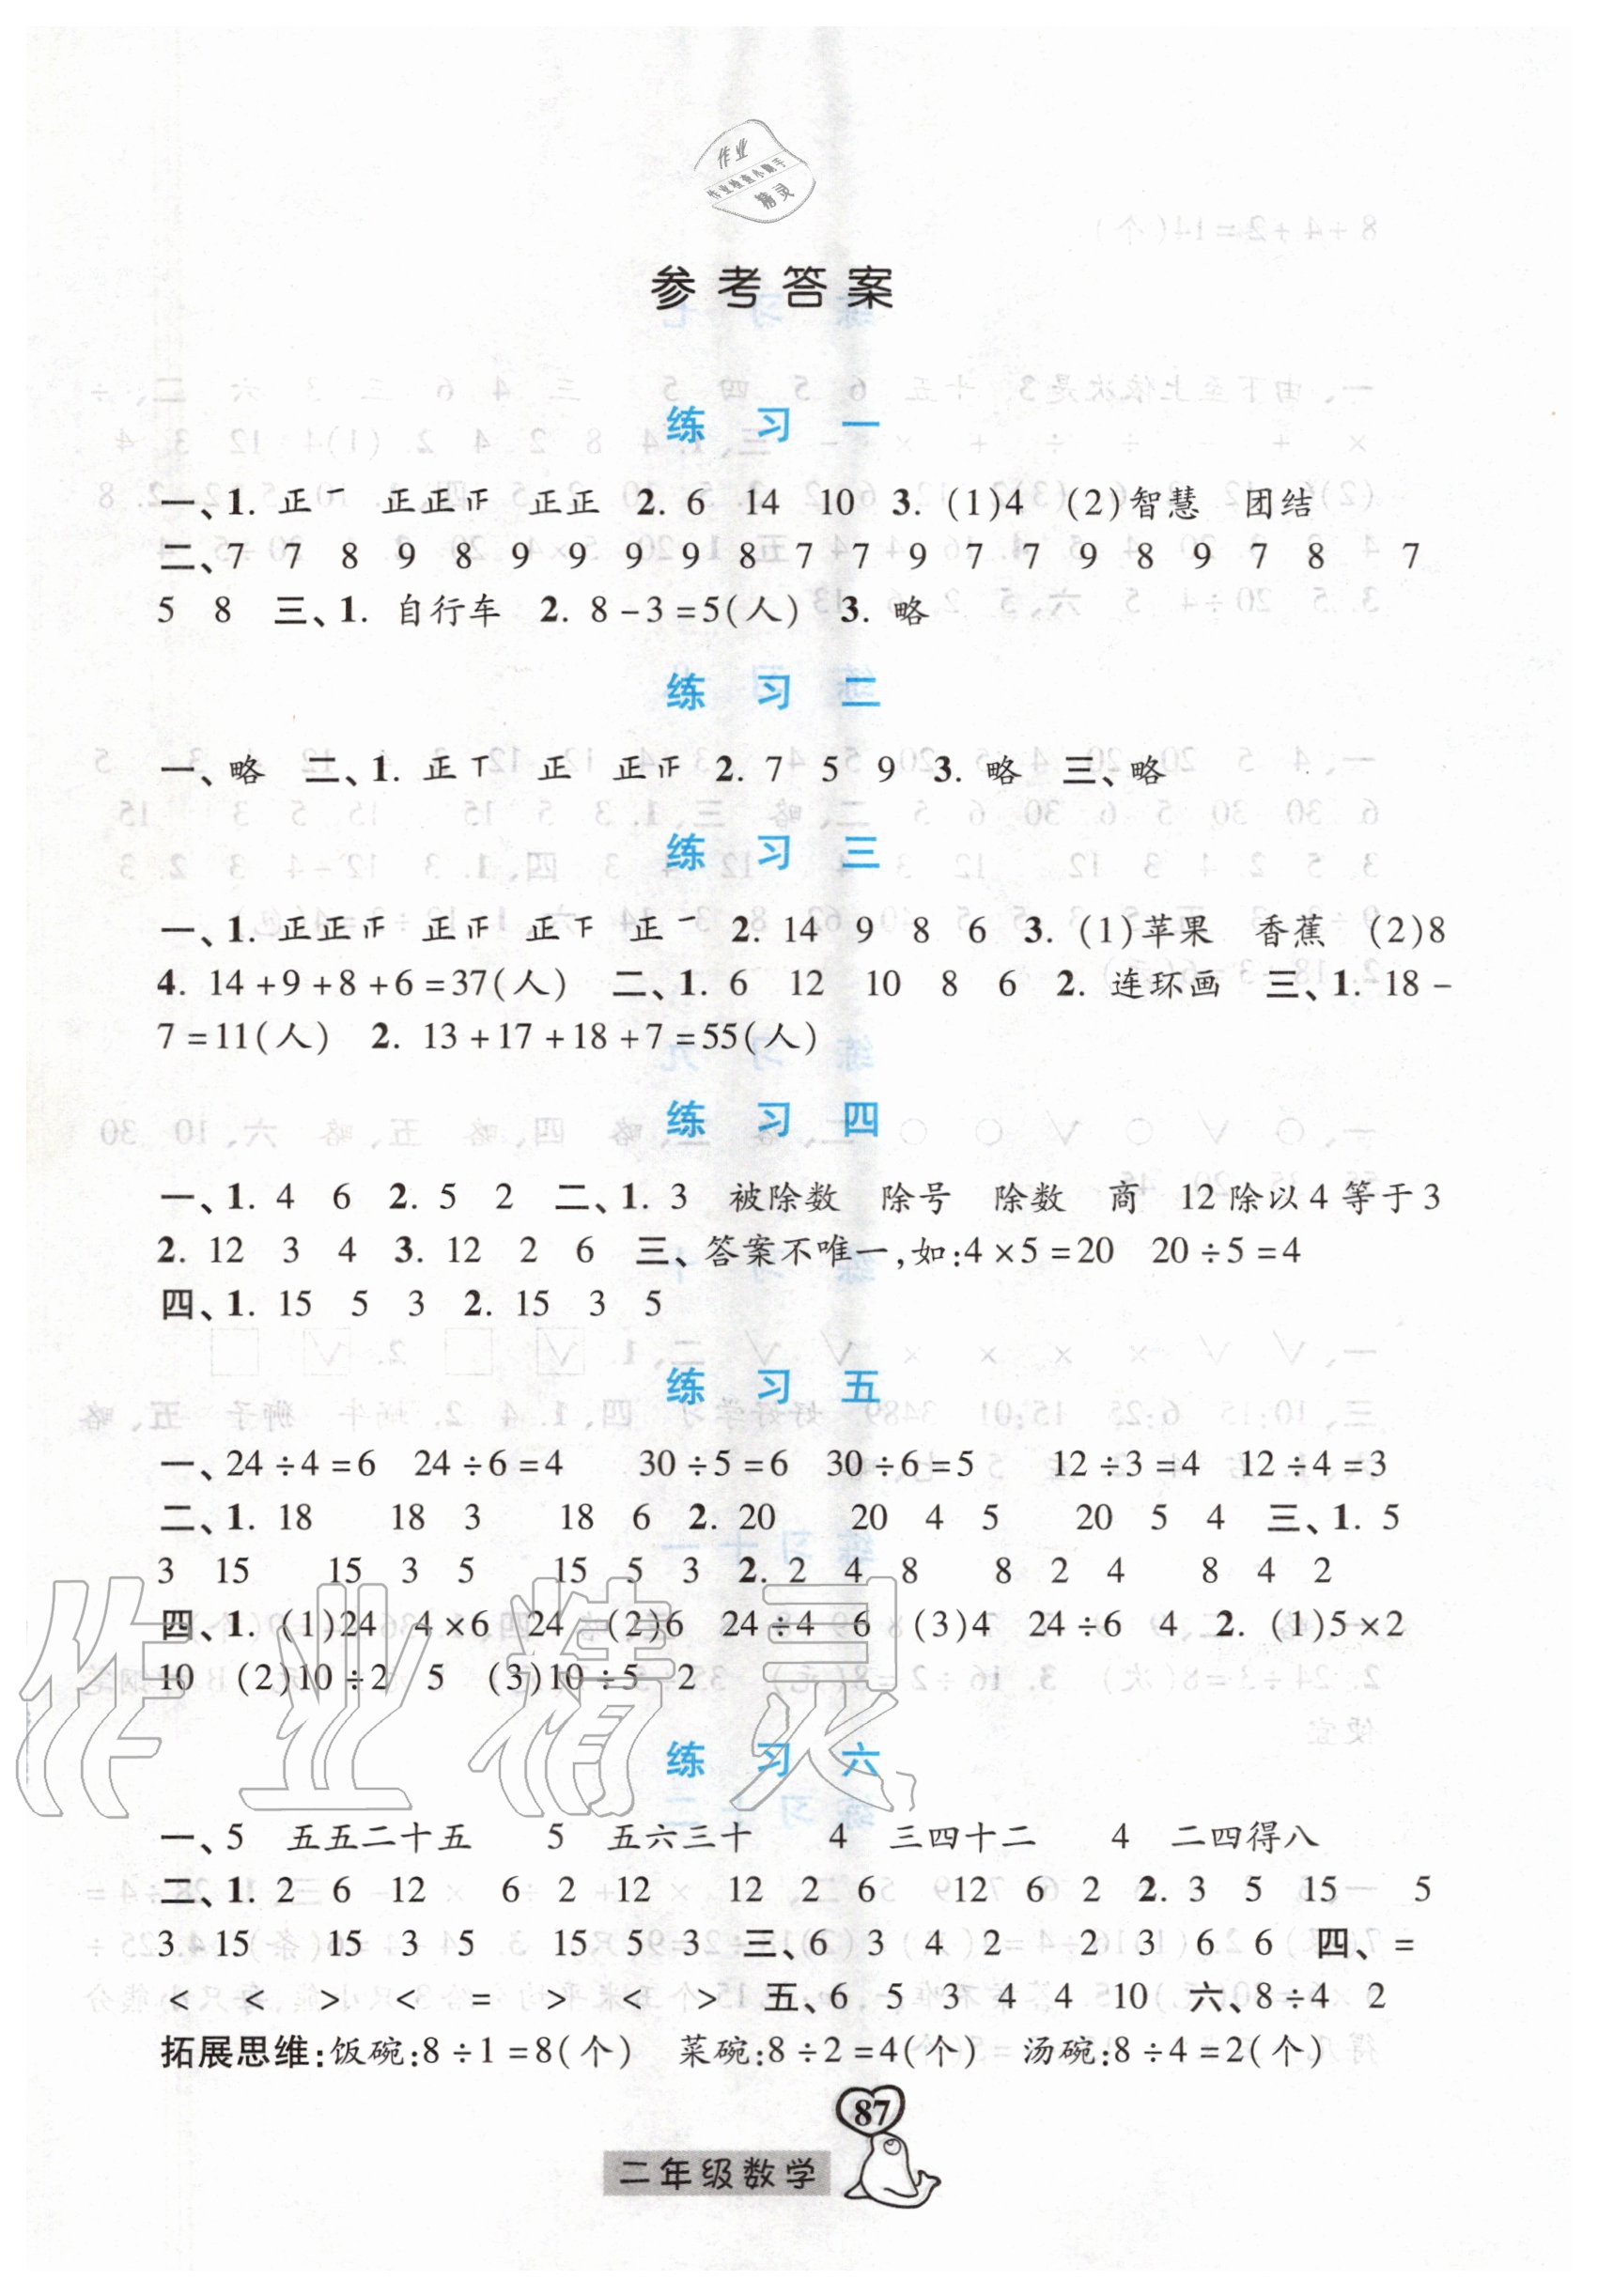 作业
作业检查小助手
精灵
参考答案
练 习 一
一、1. 正一 正正正 正正 2. 6 14 10 3. (1)4 (2)智慧 团结
二、7 7 8 9 8 9 9 9 9 8 7 7 9 7 7 9 8 9 7 8 7
5 8 三、1. 自行车 2. 8-3=5(人) 3. 略
练 习 二
一、略 二、1. 正丅 正 正 2. 7 5 9 3. 略 三、略
练 习 三
一、1. 正正 正 正下 正一 2. 14 9 8 6 3. (1)苹果 香蕉 (2)8
4. 14+9+8+6=37(人) 二、1. 6 12 10 8 6 2. 连环画 三、1. 18-
7=11(人) 2. 13+17+18+7=55(人)
练 习 四
一、1. 4 6 2. 5 2 二、1. 3 被除数 除号 除数 商 12除以4等于3
2. 12 3 4 3. 12 2 6 三、答案不唯一,如:4×5=20 20÷5=4
四、1. 15 5 3 2. 15 3 5
练 习 五
一、24÷4=6 24÷6=4 30÷5=6 30÷6=5 12÷3=4 12÷4=3
二、1. 18 18 3 18 6 2. 20 20 4 5 20 5 4 三、1. 5
3 15 15 3 5 15 5 3 2. 2 4 8 8 2 4 8 4 2
四、1. (1)24 4×6 24 (2)6 24÷4 6 (3)4 24÷6 4 2. (1)5×2
10 (2)10÷2 5 (3)10÷5 2
作业精灵
练 习 六
一、5 五五二十五 5 五六三十 4 三四十二 4 二四得八
二、1. 2 6 12 6 2 12 12 2 6 12 6 2 2. 3 5 15 5
3 15 15 3 5 15 5 3 三、6 3 4 2 2 3 6 6 四、=
< < > < = > < > 五、6 5 3 4 4 10 六、8÷4 2
拓展思维:饭碗:8÷1=8(个) 菜碗:8÷2=4(个) 汤碗:8÷4=2(个)
87
二年级数学